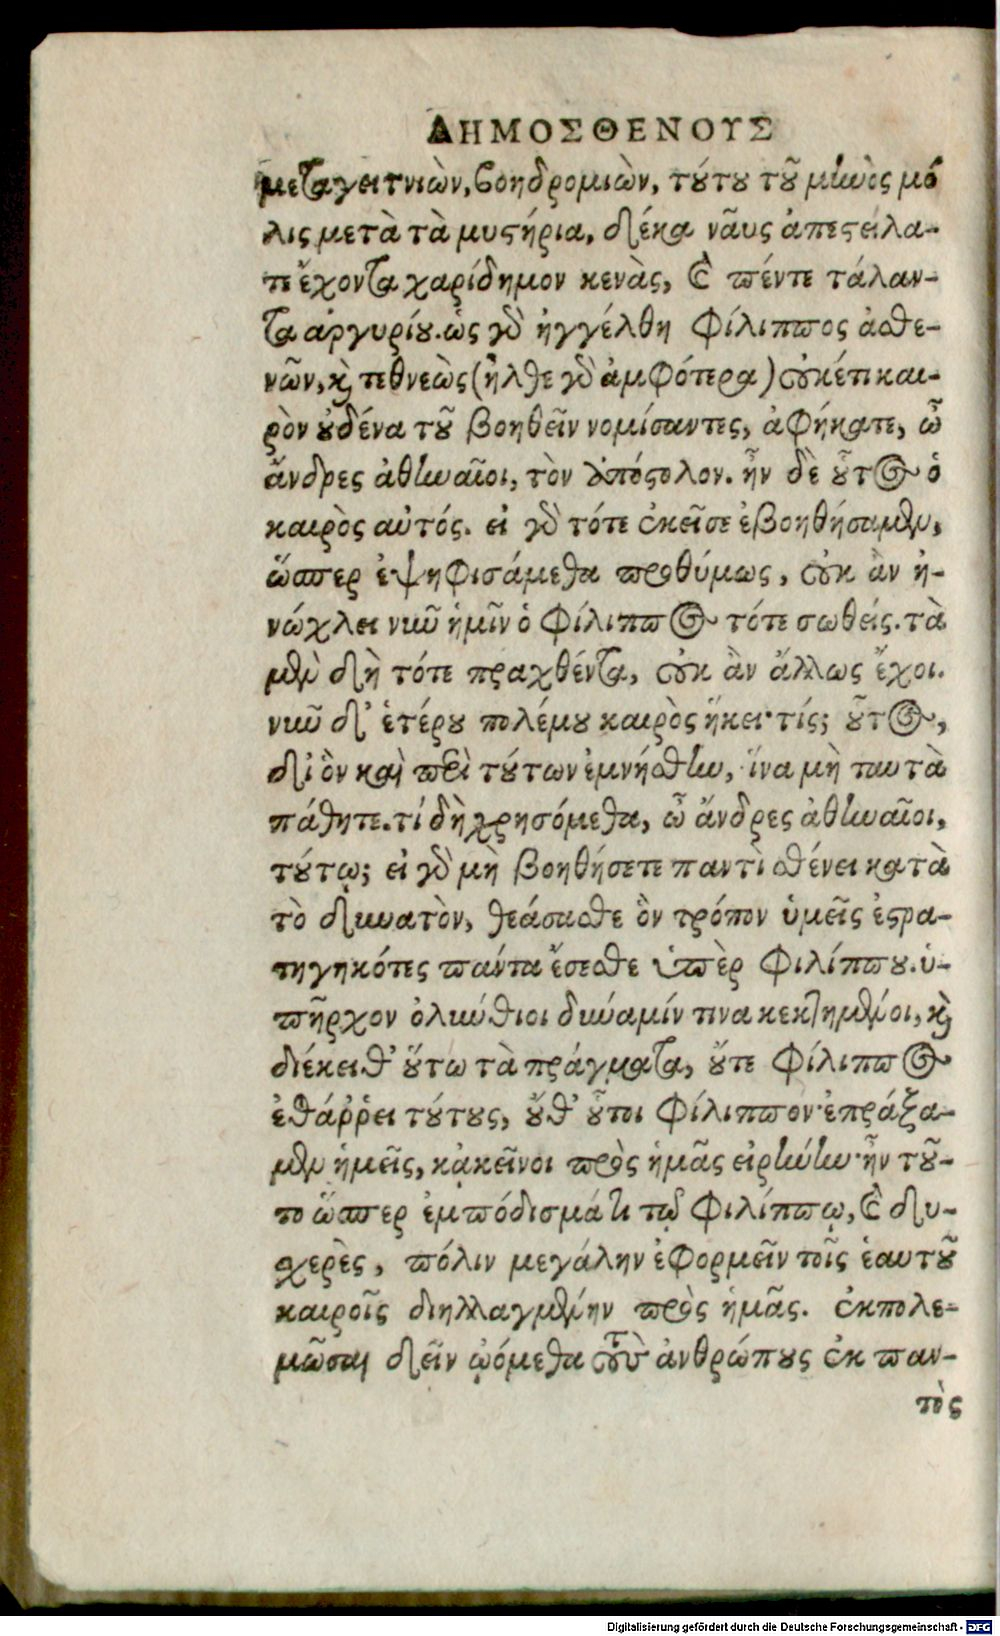 ΔΗΜΟΣΘΕΝΟΥΣ
μεταγειτνιὼν, βοηδρομιὼν, τούτου τοῦ μηνὸς μό
λις μετὰ τὰ μυστήρια, δέκα νᾶυς ἀπεστείλα-
τε ἔχοντα χαρίδημον κενὰς, καὶ πέντε τάλαν-
τα ἀργυρίου. ὡς γὰρ ἠγγέλθη Φίλιππος ἀσθε-
νῶν, καὶ τεθνεὼς (ἦλθε γὰρ ἀμφότερα) οὐκέτι και-
ρὸν οὐδένα τοῦ βοηθεῖν νομίσαντες, ἀφήκατε, ὦ
ἄνδρες ἀθηναῖοι, τὸν ἀπόστολον. ἦν δὲ οὗτος ὁ
καιρὸς αὐτός. εἰ γὰρ τότε ἐκεῖσε ἐβοηθήσαμεν,
ὥσπερ ἐψηφισάμεθα προθύμως, οὐκ ἂν ἠ-
νώχλει νῦν ἡμῖν ὁ Φίλιππος τότε σωθείς. τὰ
μὲν δὴ τότε πραχθέντα, οὐκ ἂν ἄλλως ἔχοι.
νῦν δ' ἑτέρου πολέμου καιρὸς ἥκει· τίς; οὗτος,
δι' ὃν καὶ περὶ τούτων ἐμνήσθην, ἵνα μὴ ταυτὰ
πάθητε. τί δὴ χρησόμεθα, ὦ ἄνδρες ἀθηναῖοι,
τούτῳ; εἰ γὰρ μὴ βοηθήσετε παντὶ σθένει κατὰ
τὸ δυνατὸν, θεάσασθε ὃν τρόπον ὑμεῖς ἐστρα-
τηγηκότες πάντα ἔσεσθε ὑπὲρ Φιλίππου. ὑ-
πῆρχον ὀλύνθιοι δύναμίν τινα κεκτημένοι, καὶ
διέκειθ' οὕτω τὰ πράγματα, οὔτε Φίλιππος
ἐθάῤῥει τούτους, οὔθ' οὗτοι Φίλιππον· ἐπράξα-
μεν ἡμεῖς, κᾀκεῖνοι πρὸς ἡμᾶς εἰρήνην· ἦν τοῦ-
το ὥσπερ ἐμπόδισμά τι τῷ Φιλίππῳ, καὶ δυ-
χερὲς, πόλιν μεγάλην ἐφορμεῖν τοῖς ἑαυτοῦ
καιροῖς διηλλαγμένην πρὸς ἡμᾶς. ἐκπολε-
μῶσαι δεῖν ᾠόμεθα τοὺς ἀνθρώπους ἐκ παν-
τὸς
Digitalisierung gefördert durch die Deutsche Forschungsgemeinschaft - DFG